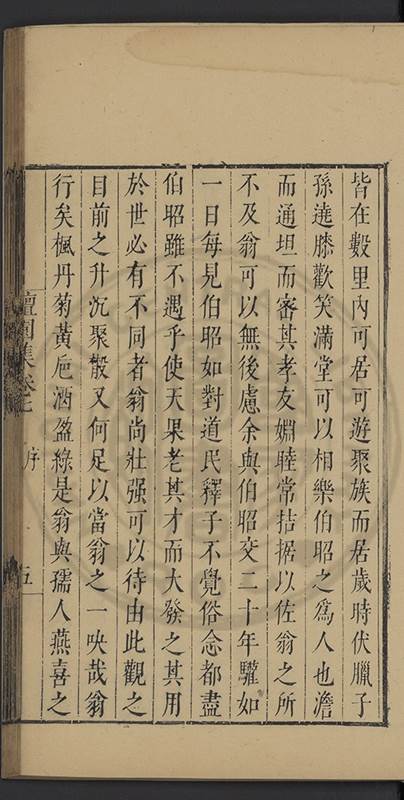 皆在數里內可居可遊聚族而居歲時伏臘子
孫遶膝歡笑滿堂可以相樂伯昭之爲人也澹
而通坦而密其孝友婣睦常拮据以佐翁之所
不及翁可以無後慮余與伯昭交二十年驩如
一日每見伯昭如對道民釋子不覺俗念都盡
伯昭雖不遇乎使天果老其才而大發之其用
於世必有不同者翁尚壯强可以待由此觀之
目前之升沉聚散又何足以當翁之一吷哉翁
行矣楓丹菊黃巵酒盈綠是翁與孺人燕喜之
園集卷 序 五